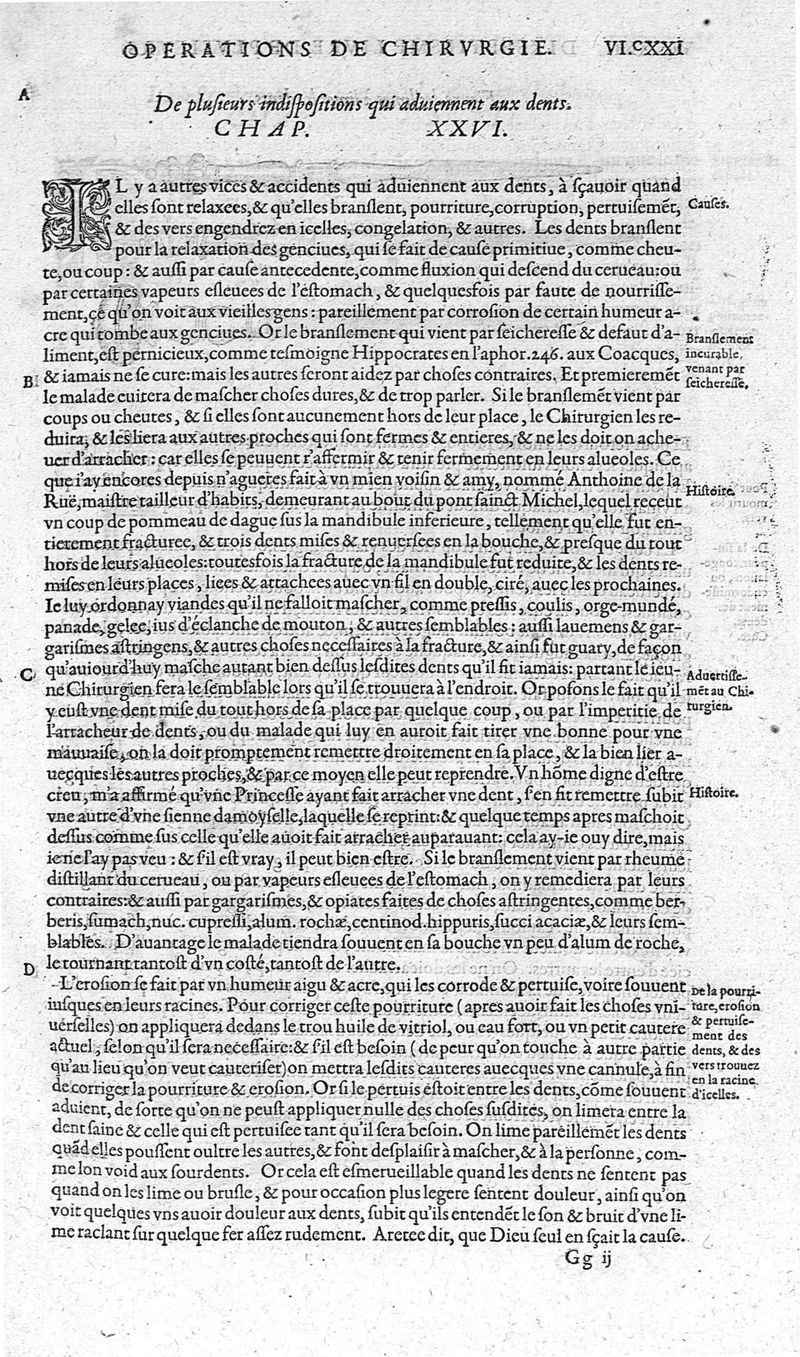 OPERATIONS DE CHIRVRGIE. VI.ᶜXXI
A
De plusieurs indispositions qui aduiennent aux dents.
CHAP. XXVI.
IL y a autres vices & accidents qui aduiennent aux dents, à sçauoir quand
elles sont relaxees, & qu'elles branslent, pourriture, corruption, pertuisemẽt,
Causes.
& des vers engendrez en icelles, congelation, & autres. Les dents branslent
pour la relaxation des genciues, qui se fait de cause primitiue, comme cheu-
te, ou coup: & aussi par cause antecedente, comme fluxion qui descend du cerueau: ou
par certaines vapeurs esleuees de l'estomach, & quelquesfois par faute de nourrisse-
ment, ce qu'on voit aux vieilles gens: pareillement par corrosion de certain humeur a-
cre qui tombe aux genciues. Or le branslement qui vient par seicheresse & defaut d'a-
liment, est pernicieux, comme tesmoigne Hippocrates en l'aphor. 246. aux Coacques,
Branslement
incurable,
venant par
seicheresse.
B & iamais ne se cure: mais les autres seront aidez par choses contraires. Et premieremẽt
le malade euitera de mascher choses dures, & de trop parler. Si le branslement vient par
coups ou cheutes, & si elles sont aucunement hors de leur place, le Chirurgien les re-
duira, & les liera aux autres proches qui sont fermes & entieres, & ne les doit on ache-
uer d'arracher: car elles se peuuent r'affermir & tenir fermement en leurs alueoles. Ce
que i'ay encores depuis n'agueres fait à vn mien voisin & amy, nommé Anthoine de la
Histoire.
Ruë, maistre tailleur d'habits, demeurant au bout du pont sainct Michel, lequel receut
vn coup de pommeau de dague sus la mandibule inferieure, tellement qu'elle fut en-
tierement fracturee, & trois dents mises & renuersees en la bouche, & presque du tout
hors de leurs alueoles: toutesfois la fracture de la mandibule fut reduite, & les dents re-
mises en leurs places, liees & attachees auec vn fil en double, ciré, auec les prochaines.
Ie luy ordonnay viandes qu'il ne falloit mascher, comme pressis, coulis, orge-mundé,
panade, gelee, ius d'éclanche de mouton, & autres semblables: aussi lauemens & gar-
garismes astringens, & autres choses necessaires à la fracture, & ainsi fut guary, de façon
C qu'auiourd'huy masche autant bien dessus lesdites dents qu'il fit iamais: partant le ieu-
ne Chirurgien fera le semblable lors qu'il se trouuera à l'endroit. Or posons le fait qu'il
Aduertisse-
mẽt au Chi-
rurgien.
y eust vne dent mise du tout hors de sa place par quelque coup, ou par l'imperitie de
l'arracheur de dents, ou du malade qui luy en auroit fait tirer vne bonne pour vne
mauuaise, on la doit promptement remettre droitement en sa place, & la bien lier a-
uecques les autres proches, & par ce moyen elle peut reprendre. Vn hõme digne d'estre
creu, m'a affirmé qu'vne Princesse ayant fait arracher vne dent, s'en fit remettre subit
Histoire.
vne autre d'vne sienne damoyselle, laquelle se reprint: & quelque temps apres maschoit
dessus comme sus celle qu'elle auoit fait arracher auparauant: cela ay-ie ouy dire, mais
ie ne l'ay pas veu: & s'il est vray, il peut bien estre. Si le branslement vient par rheume
distillant du cerueau, ou par vapeurs esleuees de l'estomach, on y remediera par leurs
contraires: & aussi par gargarismes, & opiates faites de choses astringentes, comme ber-
beris, sumach, nuc. cupressi, alum. rochæ, centinod. hippuris, succi acaciæ, & leurs sem-
blables. D'auantage le malade tiendra souuent en sa bouche vn peu d'alum de roche,
D le tournant tantost d'vn costé, tantost de l'autre.
L'erosion se fait par vn humeur aigu & acre, qui les corrode & pertuise, voire souuent
De la pourri-
ture, erosion
& pertuise-
ment des
dents, & des
vers trouuez
en la racine
d'icelles.
iusques en leurs racines. Pour corriger ceste pourriture (apres auoir fait les choses vni-
uerselles) on appliquera dedans le trou huile de vitriol, ou eau fort, ou vn petit cautere
actuel, selon qu'il sera necessaire: & s'il est besoin (de peur qu'on touche à autre partie
qu'au lieu qu'on veut cauteriser) on mettra lesdits cauteres auecques vne cannule, à fin
de corriger la pourriture & erosion. Or si le pertuis estoit entre les dents, cõme souuent
aduient, de sorte qu'on ne peust appliquer nulle des choses susdites, on limera entre la
dent saine & celle qui est pertuisee tant qu'il sera besoin. On lime pareillemẽt les dents
quãd elles poussent oultre les autres, & font desplaisir à mascher, & à la personne, com-
me lon void aux sourdents. Or cela est esmerueillable quand les dents ne sentent pas
quand on les lime ou brusle, & pour occasion plus legere sentent douleur, ainsi qu'on
voit quelques vns auoir douleur aux dents, subit qu'ils entendẽt le son & bruit d'vne li-
me raclant sur quelque fer assez rudement. Aretee dit, que Dieu seul en sçait la cause.
Gg ij